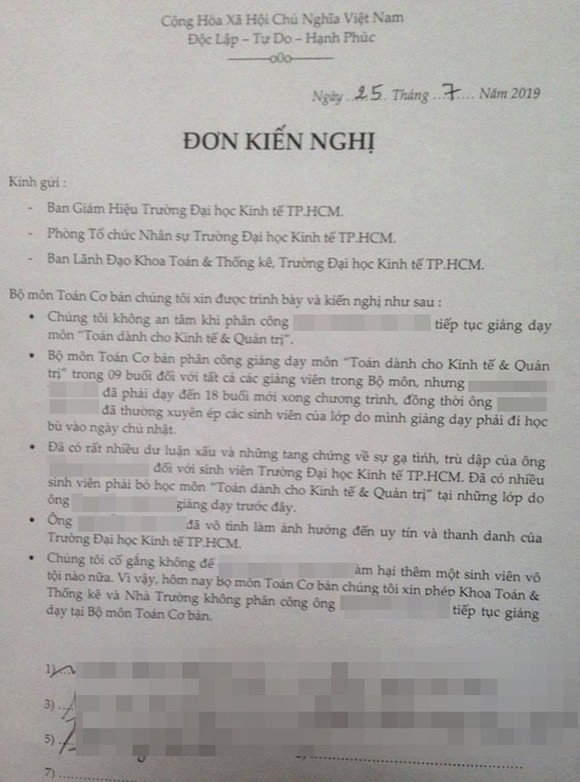 Cộng Hòa Xã Hội Chủ Nghĩa Việt Nam
Độc Lập – Tự Do – Hạnh Phúc
———o0o———
Ngày ..25.. Tháng ...7.... Năm 2019
ĐƠN KIẾN NGHỊ
Kính gửi :
- Ban Giám Hiệu Trường Đại học Kinh tế TP.HCM.
- Phòng Tổ chức Nhân sự Trường Đại học Kinh tế TP.HCM.
- Ban Lãnh Đạo Khoa Toán & Thống kê, Trường Đại học Kinh tế TP.HCM.
Bộ môn Toán Cơ bản chúng tôi xin được trình bày và kiến nghị như sau :
• Chúng tôi không an tâm khi phân công tiếp tục giảng dạy
môn “Toán dành cho Kinh tế & Quản trị”.
• Bộ môn Toán Cơ bản phân công giảng dạy môn “Toán dành cho Kinh tế & Quản
trị” trong 09 buổi đối với tất cả các giảng viên trong Bộ môn, nhưng
đã phải dạy đến 18 buổi mới xong chương trình, đồng thời ông
đã thường xuyên ép các sinh viên của lớp do mình giảng dạy phải đi học
bù vào ngày chủ nhật.
• Đã có rất nhiều dư luận xấu và những tang chứng về sự gạ tình, trù dập của ông
đối với sinh viên Trường Đại học Kinh tế TP.HCM. Đã có nhiều
sinh viên phải bỏ học môn “Toán dành cho Kinh tế & Quản trị” tại những lớp do
ông giảng dạy trước đây.
• Ông đã vô tình làm ảnh hưởng đến uy tín và thanh danh của
Trường Đại học Kinh tế TP.HCM.
• Chúng tôi cố gắng không để àm hại thêm một sinh viên vô
tội nào nữa. Vì vậy, hôm nay Bộ môn Toán Cơ bản chúng tôi xin phép Khoa Toán &
Thống kê và Nhà Trường không phân công ông tiếp tục giảng
dạy tại Bộ môn Toán Cơ bản.
1)
3)
5)
7)